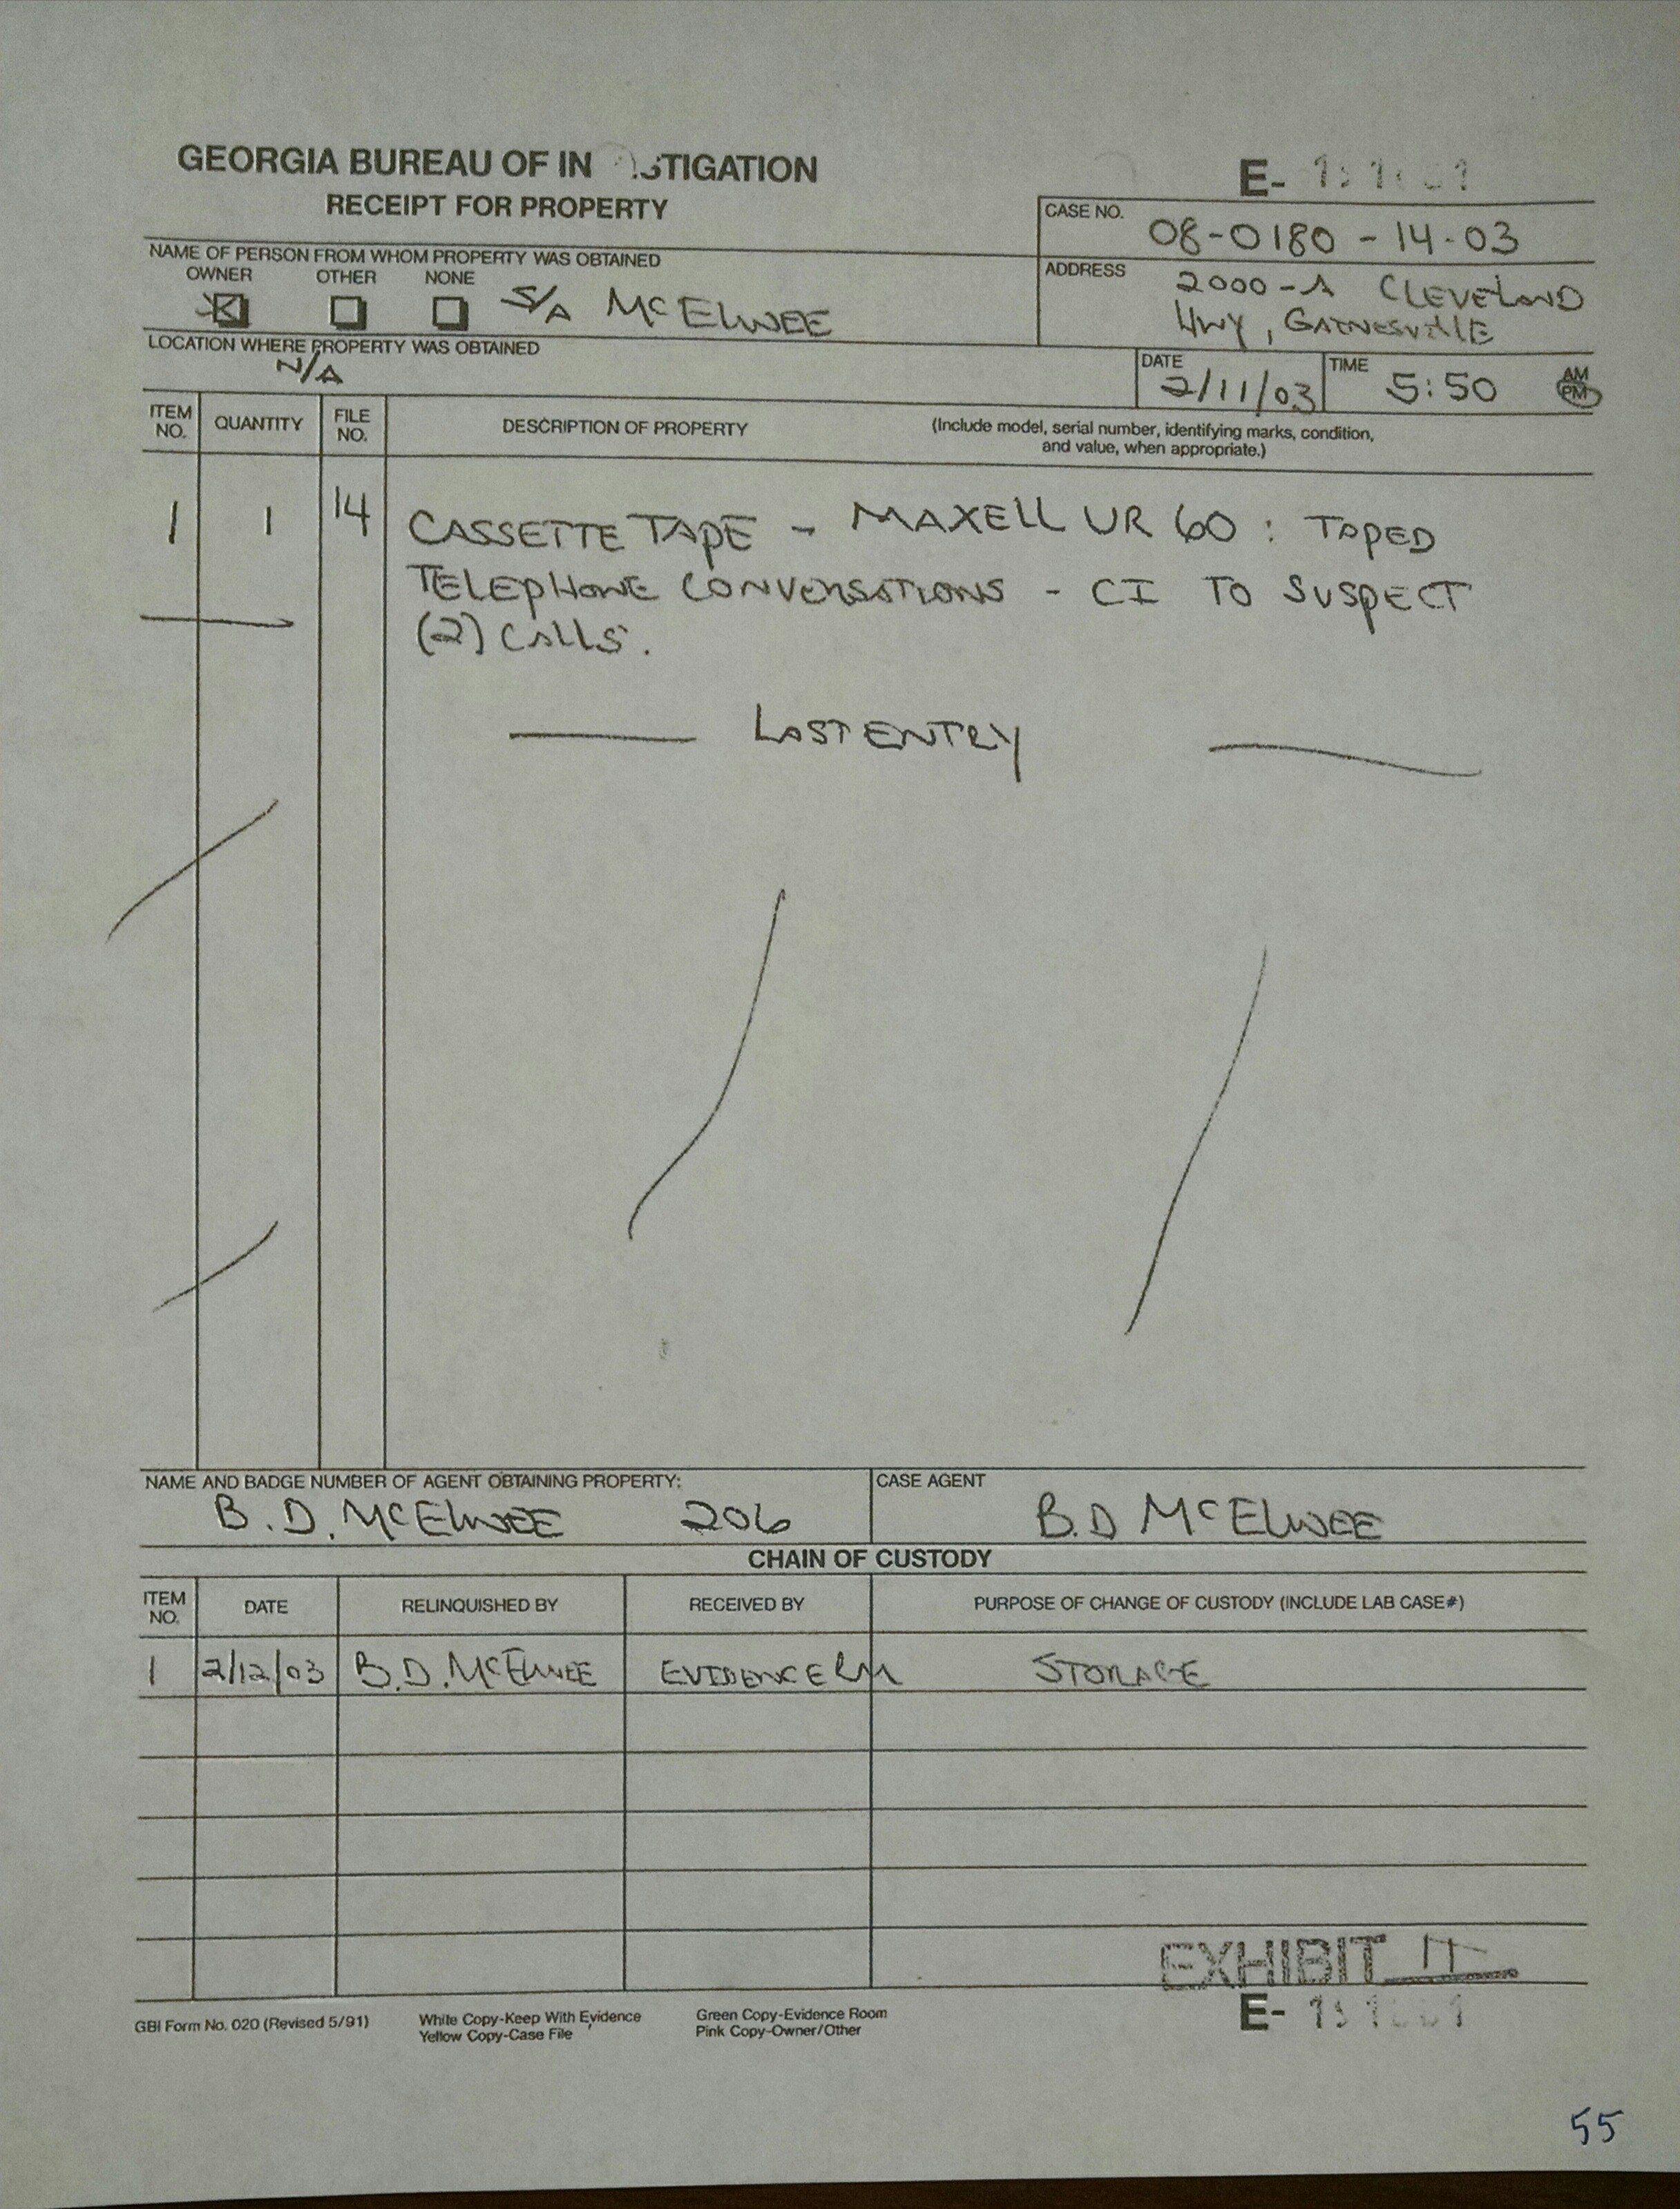 GEORGIA BUREAU OF IN STIGATION
RECEIPT FOR PROPERTY
E-
CASE NO.
08-0180-14-03
NAME OF PERSON FROM WHOM PROPERTY WAS OBTAINED
OWNER OTHER NONE
S/A McELWEE
ADDRESS
2000-A CLEVELAND
HWY, GAINESVILLE
LOCATION WHERE PROPERTY WAS OBTAINED
N/A
DATE
2/11/03
TIME
5:50
AM
PM
ITEM NO. QUANTITY FILE NO. DESCRIPTION OF PROPERTY
(Include model, serial number, identifying marks, condition,
and value, when appropriate.)
1 1 14 CASSETTE TAPE - MAXELL UR 60 : TAPED
TELEPHONE CONVERSATIONS - CI TO SUSPECT
(2) CALLS.
LAST ENTRY
NAME AND BADGE NUMBER OF AGENT OBTAINING PROPERTY:
B.D. McELWEE 206
CASE AGENT
B.D McELWEE
CHAIN OF CUSTODY
ITEM NO. DATE RELINQUISHED BY RECEIVED BY PURPOSE OF CHANGE OF CUSTODY (INCLUDE LAB CASE#)
1 2/12/03 B.D. McELWEE EVIDENCE RM STORAGE
EXHIBIT 11
E-
GBI Form No. 020 (Revised 5/91)
White Copy-Keep With Evidence
Yellow Copy-Case File
Green Copy-Evidence Room
Pink Copy-Owner/Other
55